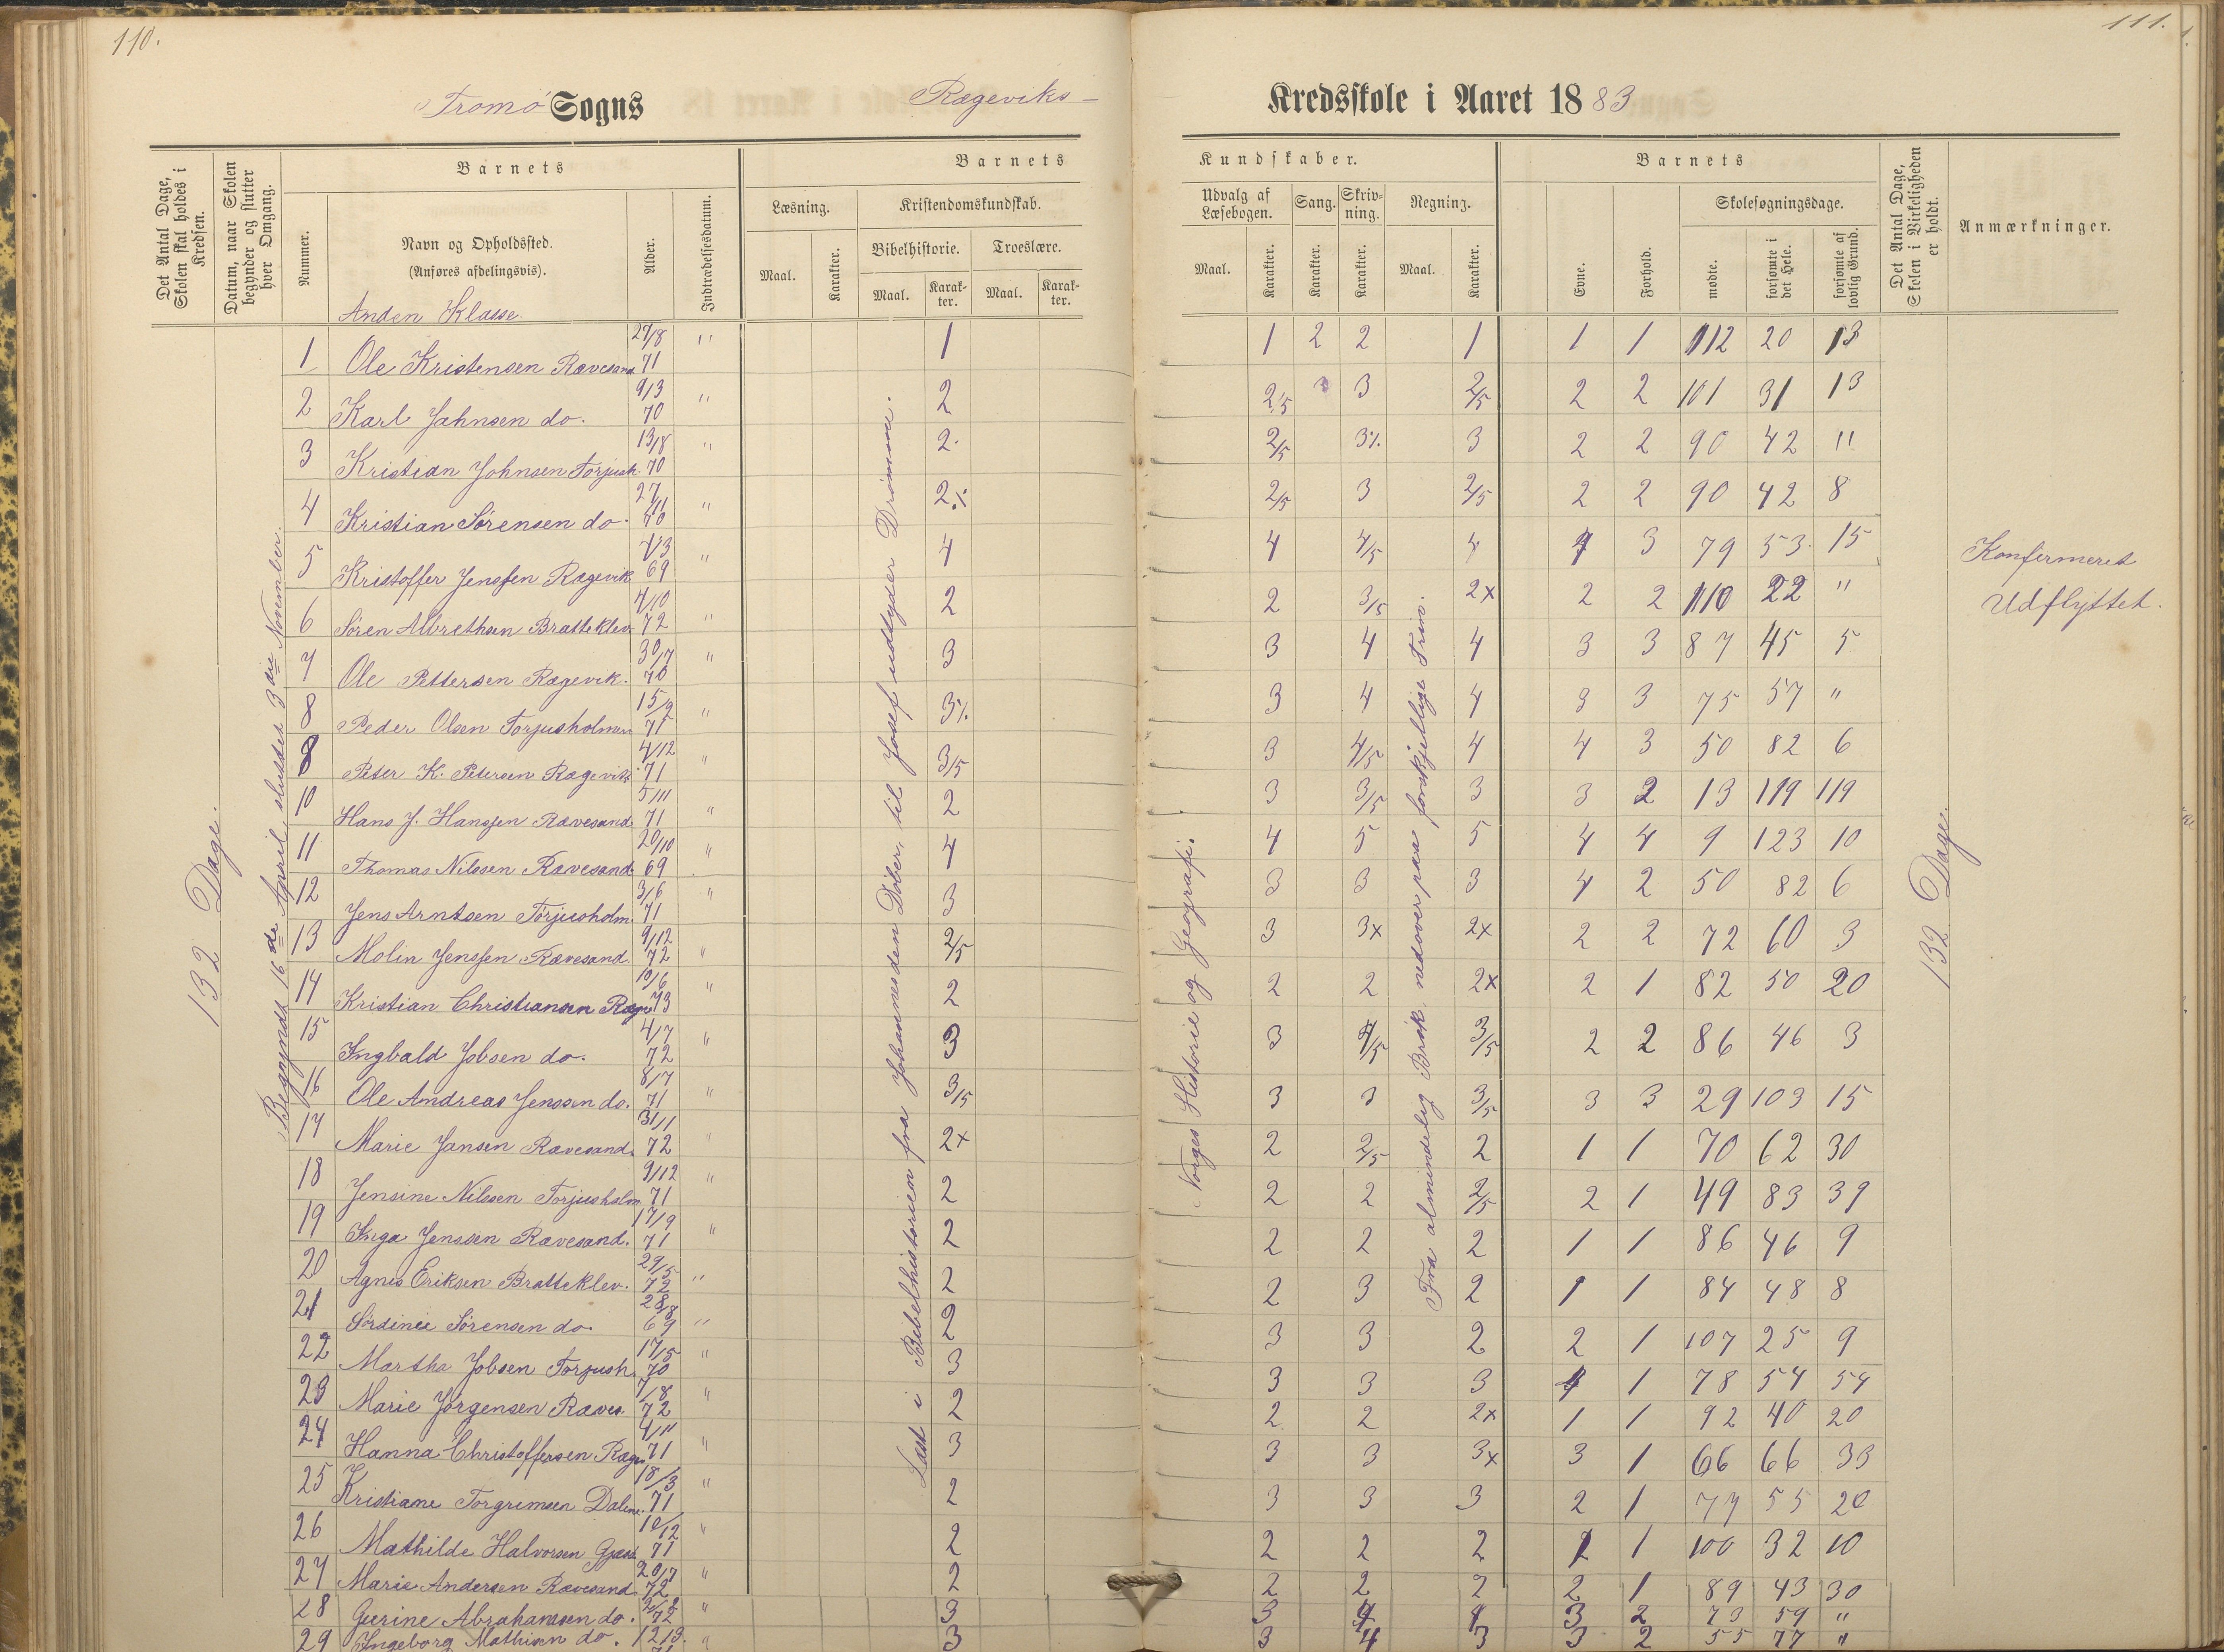 110.
111.
Tromø Sogns
Rægeviks –
Kredsskole i Aaret 1883
Det Antal Dage, Skolen skal holdes i Kredsen.
Datum, naar Skolen begynder og slutter hver Omgang.
Barnets
Nummer.
Navn og Opholdssted.
(Anføres afdelingsvis).
Alder.
Indtrædelsesdatum.
Barnets
Læsning.
Maal. Karakter.
Kristendomskundskab.
Bibelhistorie. Troeslære.
Maal. Karakter. Maal. Karakter.
Kundskaber.
Udvalg af Læsebogen. Sang. Skrivning. Regning.
Maal. Karakter. Karakter. Karakter. Maal. Karakter.
Barnets
Evne. Forhold.
Skolesøgningsdage.
mødte. forsømte i det Hele. forsømte af lovlig Grund.
Det Antal Dage, Skolen i Virkeligheden er holdt.
Anmærkninger.
Anden Klasse
132 Dage.
Begyndt 16de April, sluttet 3die November.
Læst i Bibelhistorien fra Johannes den Døber, til Josef udtyder Drømme.
Norges Historie og Geografi.
Fra almindelig Brøk nedover paa forskjellige Trin.
132 Dage.
1 Ole Kristensen Rævesand 27/8 71 " 1 1 2 2 1 1 1 112 20 13
2 Karl Jahnsen do. 9/3 70 " 2 2/5 3 3 2/5 2 2 101 31 13
3 Kristian Johnsen Torjush. 13/8 70 " 2 2/5 3% 3 2 2 90 42 "
4 Kristian Sørensen do. 27/11 70 " 2% 2/5 3 2/5 2 2 90 42 8
5 Kristoffer Jenssen Rægevik 4/3 69 " 4 4 4/5 4 4 3 79 53 15 Konfermeret
6 Søren Albrethsen Bratteklev 4/10 72 " 2 2 3/5 2x 2 2 110 22 " Udflyttet.
7 Ole Pettersen Rægevik. 30/7 70 " 3 3 4 4 3 3 87 45 5
8 Peder Olsen Torjusholmen 15/9 71 " 3% 3 4 4 3 3 75 57 "
8 Peter K. Petersen Rægevik 4/12 71 " 3/5 3 4/5 4 4 3 50 82 6
10 Hans J. Hanssen Rævesand 5/11 71 " 2 3 3/5 3 3 2 13 119 119
11 Thomas Nilssen Rævesand 20/10 69 " 4 4 5 5 4 4 9 123 10
12 Jens Arntsen Torjusholm. 3/6 71 " 3 3 3 3 4 2 50 82 6
13 Molin Jenssen Rævesand 9/12 72 " 2/5 3 3x 2x 2 2 72 60 3
14 Kristian Christiansen Rægev 10/6 73 " 2 2 2 2x 2 1 82 50 20
15 Ingbald Jobsen do. 4/7 72 " 3 3 4/5 3/5 2 2 86 46 3
16 Ole Andreas Jenssen do. 8/7 71 " 3/5 3 3 3/5 3 3 29 103 15
17 Marie Jansen Rævesand. 31/1 72 " 2x 2 2/5 2 1 1 70 62 30
18 Jensine Nilssen Torjusholm 9/12 71 " 2 2 2 2/5 2 1 49 83 39
19 Inga Jenssen Rævesand. 17/9 71 " 2 2 2 2 1 1 86 46 9
20 Agnis Eriksen Bratteklev. 29/5 72 " 2 2 3 2 1 1 84 48 8
21 Sørdinee Sørensen do. 28/8 69 " 2 3 3 2 2 1 107 25 9
22 Martha Jobsen Torjush. 17/5 70 " 3 3 3 3 4 1 78 54 54
23 Marie Jørgensen Ræves. 7/8 72 " 2 2 2 2x 1 1 92 40 20
24 Hanna Christoffersen Rægev 4/11 71 " 3 3 3 3x 3 1 66 66 33
25 Kristiane Torgrimsen Dalene 18/3 71 " 2 3 3 3 2 1 77 55 20
26 Mathilde Halvorsen Gjerst 10/12 71 " 2 2 2 2 2 1 100 32 10
27 Marie Andersen Rævesand 20/7 72 " 2 2 2 2 2 1 89 43 30
28 Gurine Abrahamsen do. 72 " 3 3 4 4 3 2 73 59 "
29 Ingeborg Mathisen do. 12/3 71 " 3 3 4 3 3 2 55 77 "